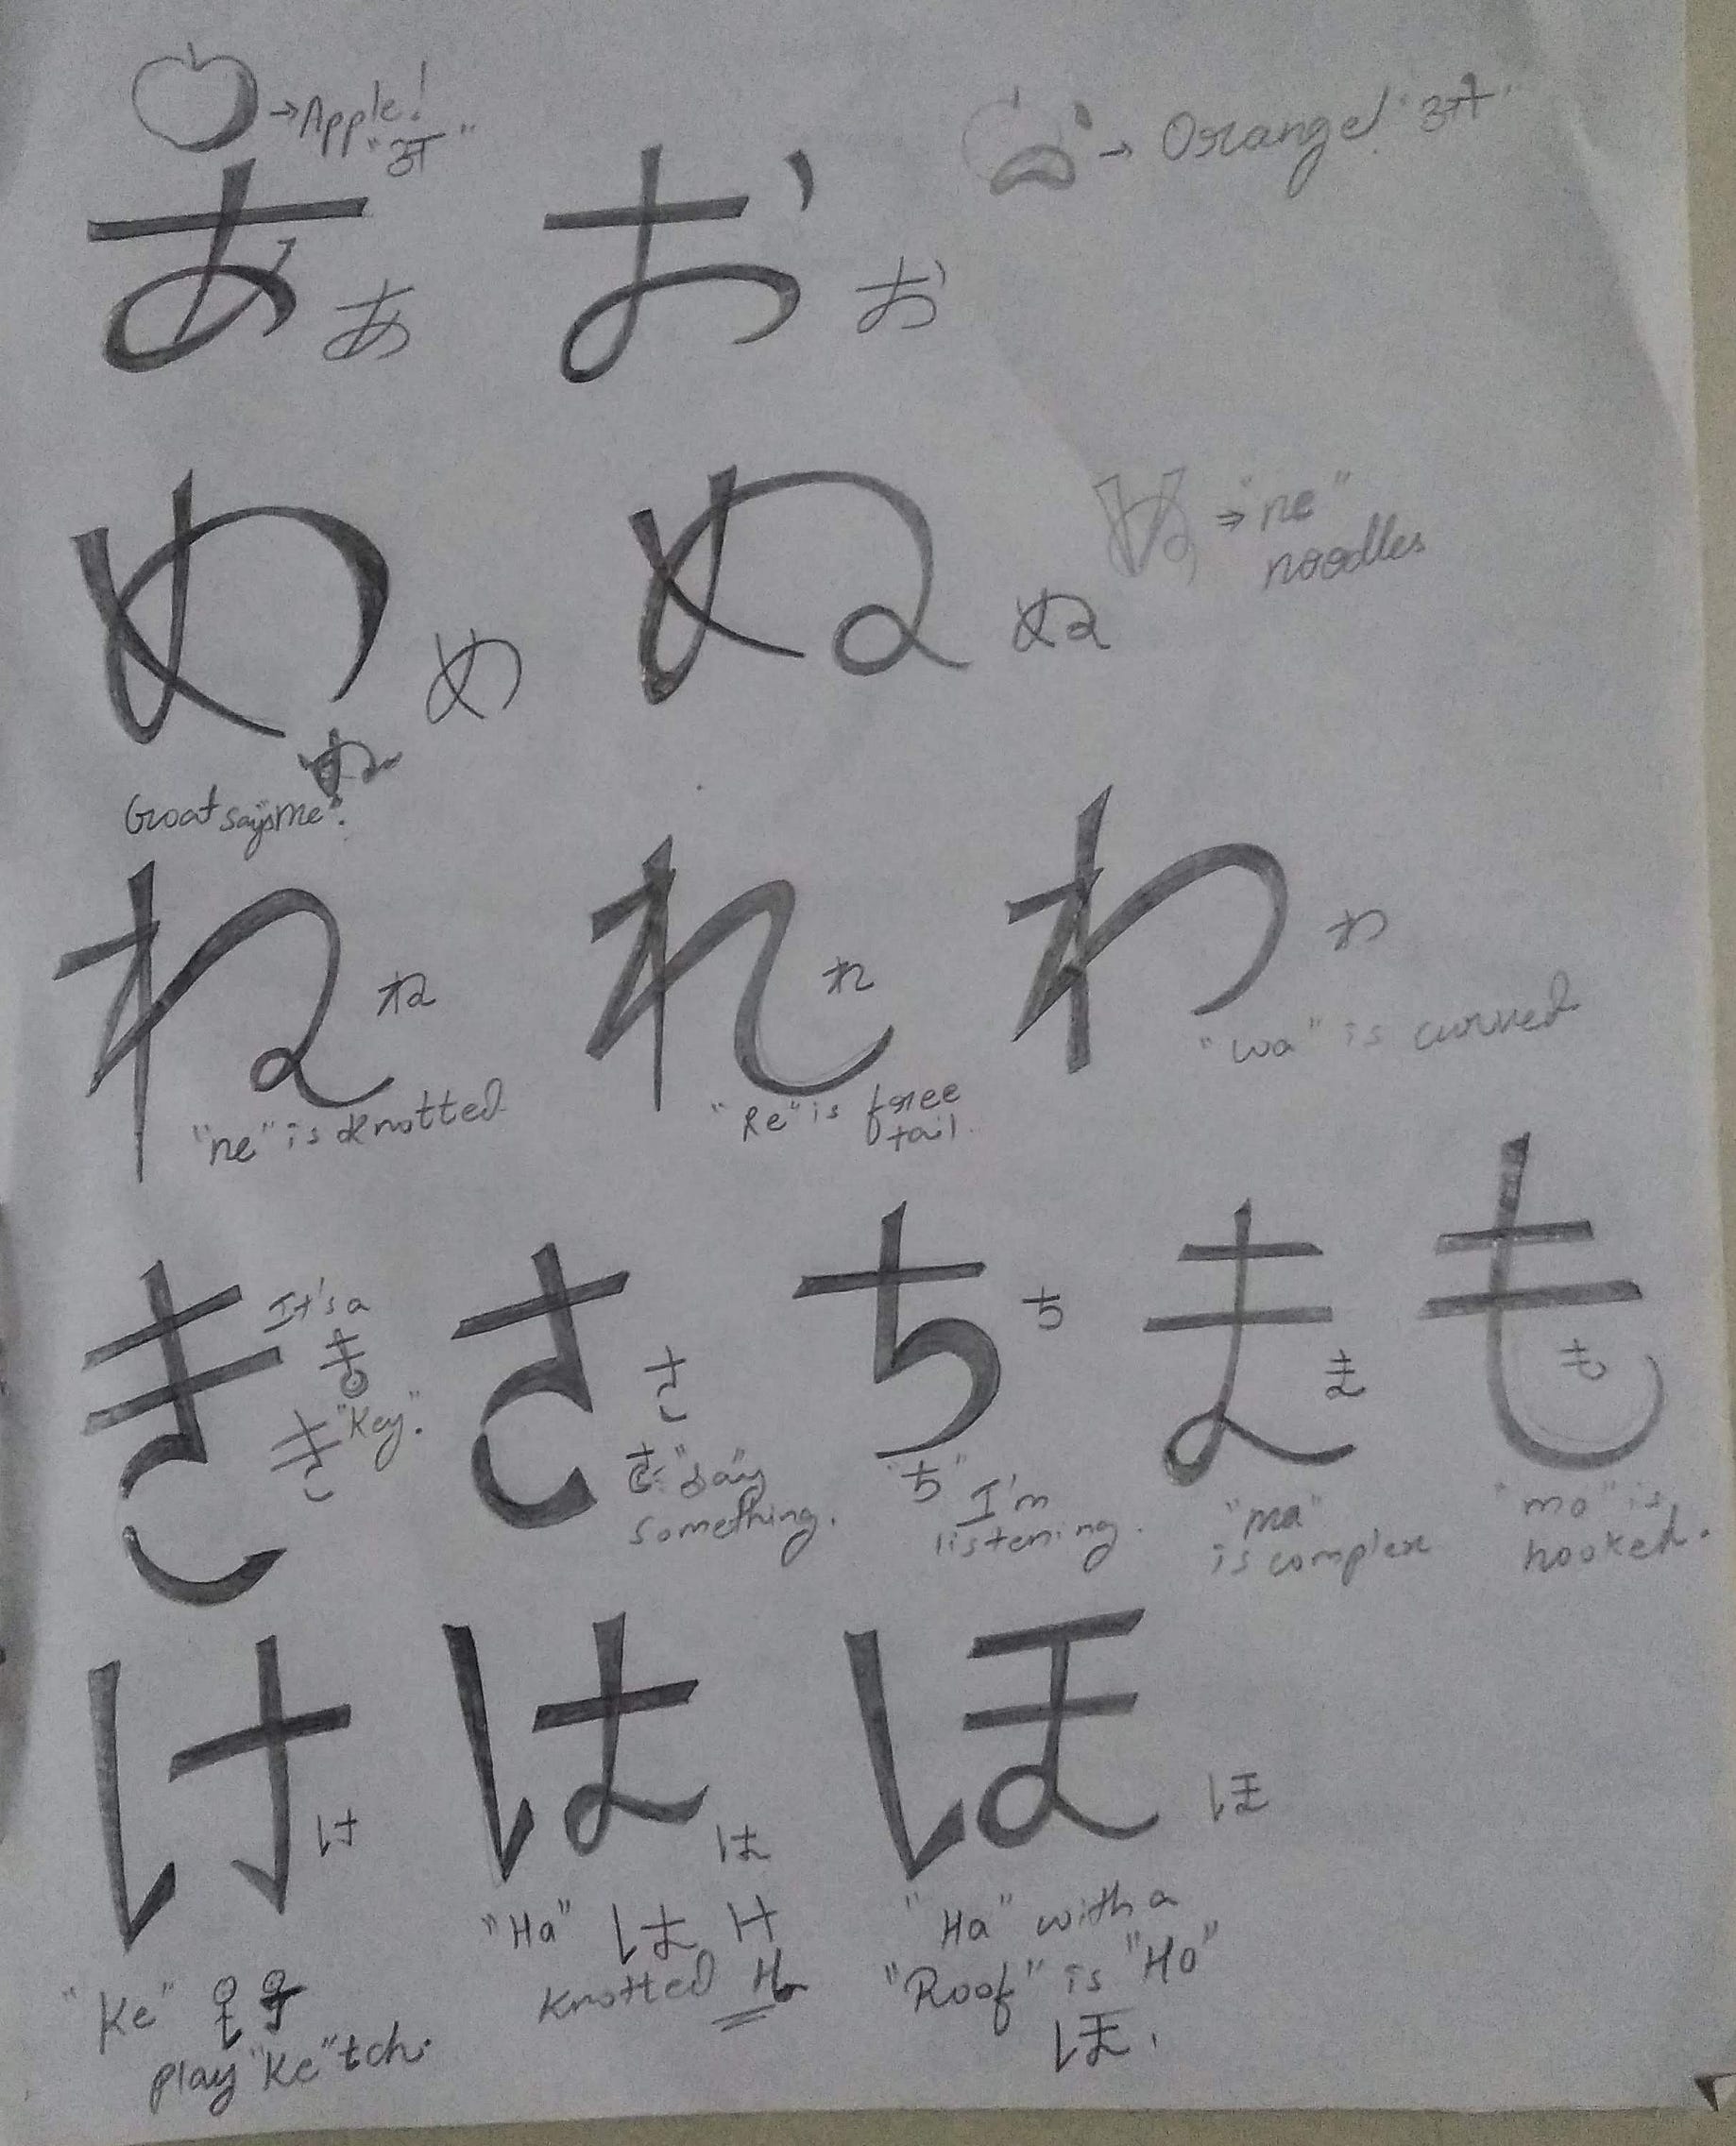 → Apple!
"अ"
→ Orange! "आ"
あ あ お お
め め ぬ ぬ
ぬ ⇒ "ne"
noodles
ぬ
Goat says me!
ね ね れ れ わ わ
"ne" is knotted
"Re" is free
tail.
"wa" is curved
き さ さ ち ち ま ま も も
It's a
き
"Key".
き
さ "say"
something.
"ち" I'm
listening.
"ma"
is complex
"mo" is
hooked.
け け は は ほ ほ
"Ke"
play "Ke"tch.
"Ha" は け
Knotted H
"Ha" with a
"Roof" is "Ho"
ほ.